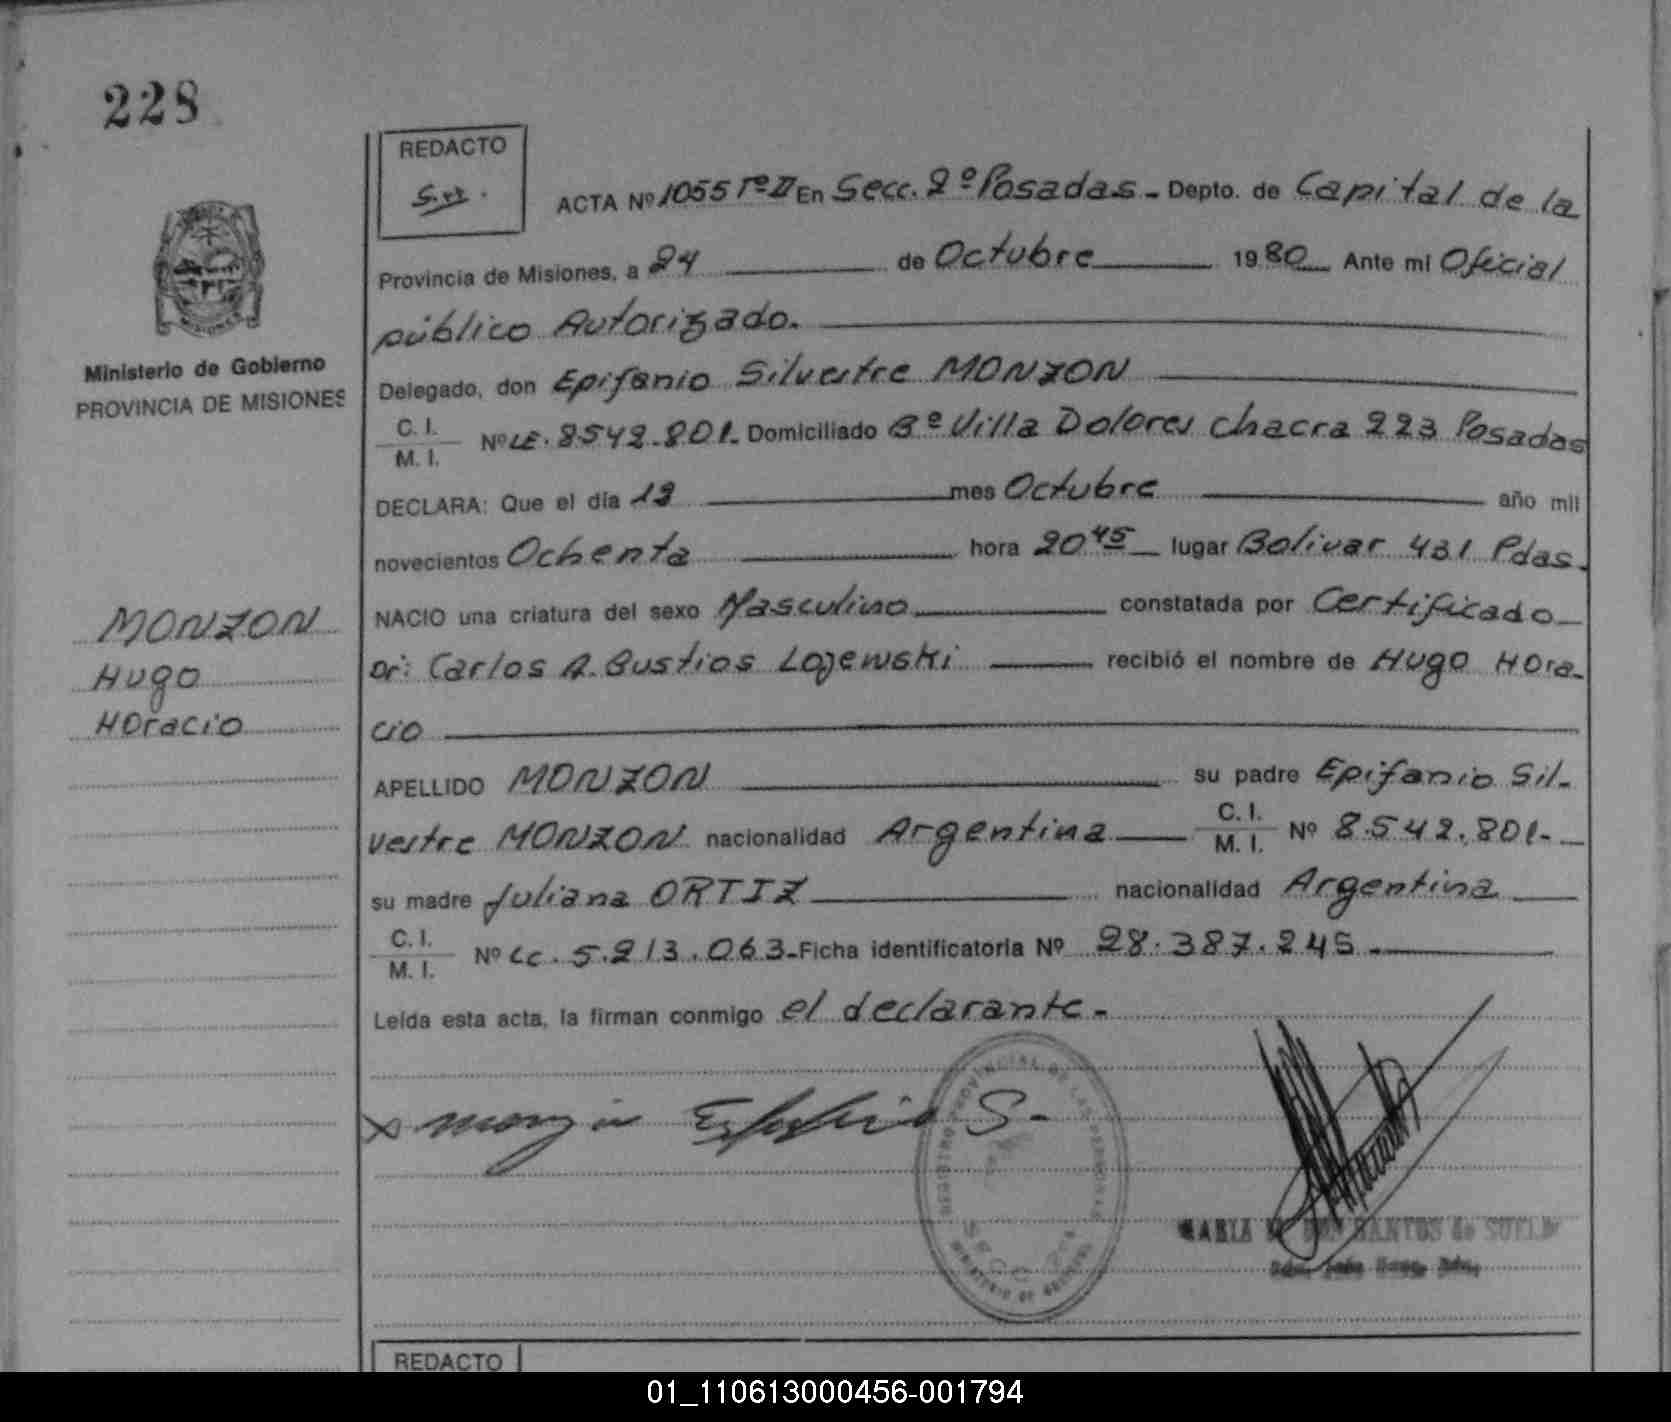 228
REDACTO
ACTA Nº 1055 Tº II En Secc. 2º Posadas - Depto. de Capital de la
Provincia de Misiones, a 24 de Octubre 1980 Ante mi Oficial
público Autorizado.
Ministerio de Gobierno
PROVINCIA DE MISIONES
Delegado, don Epifanio Silvestre MONZON
C. I.
M. I.
Nº LE. 8.542.801- Domiciliado Bº Villa Dolores chacra 223 Posadas
DECLARA: Que el día 13 mes Octubre año mil
novecientos Ochenta hora 20 45 lugar Bolivar 431 Pdas.
NACIO una criatura del sexo Masculino constatada por Certificado
Dr: Carlos A. Bustios Lojewski recibió el nombre de Hugo Hora-
cio
MONZON
Hugo
Horacio
APELLIDO MONZON su padre Epifanio Sil-
vestre MONZON nacionalidad Argentina C. I. M. I. Nº 8.542.801-
su madre Juliana ORTIZ nacionalidad Argentina
C. I.
M. I.
Nº LC. 5.213.063- Ficha identificatoria Nº 28.387.245.-
Leída esta acta, la firman conmigo el declarante.-
REGISTRO PROVINCIAL DE LAS PERSONAS
SECC. 2da
MINISTERIO DE GOBIERNO
REDACTO
01_110613000456-001794